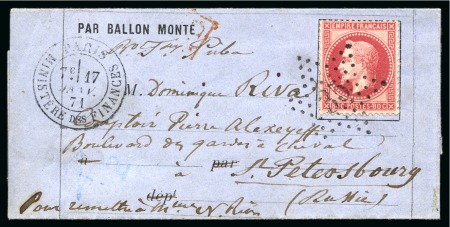 PAR BALLON MONTÉ
EMPIRE FRANÇAIS
PARIS
17
JANV.
71
MINISTÈRE DES FINANCES
M. Dominique Riva
Comptoir Pierre Alexeyeff
Boulevard des gardes à cheval
à par St. Petersbourg
dépt (Russie)
Pour remettre à Mme N. Riva